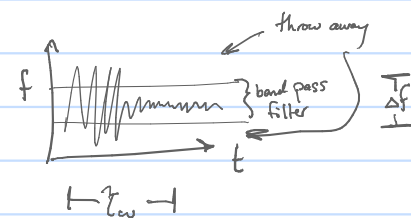 throw away
f
band pass
filter
Δf
t
τ